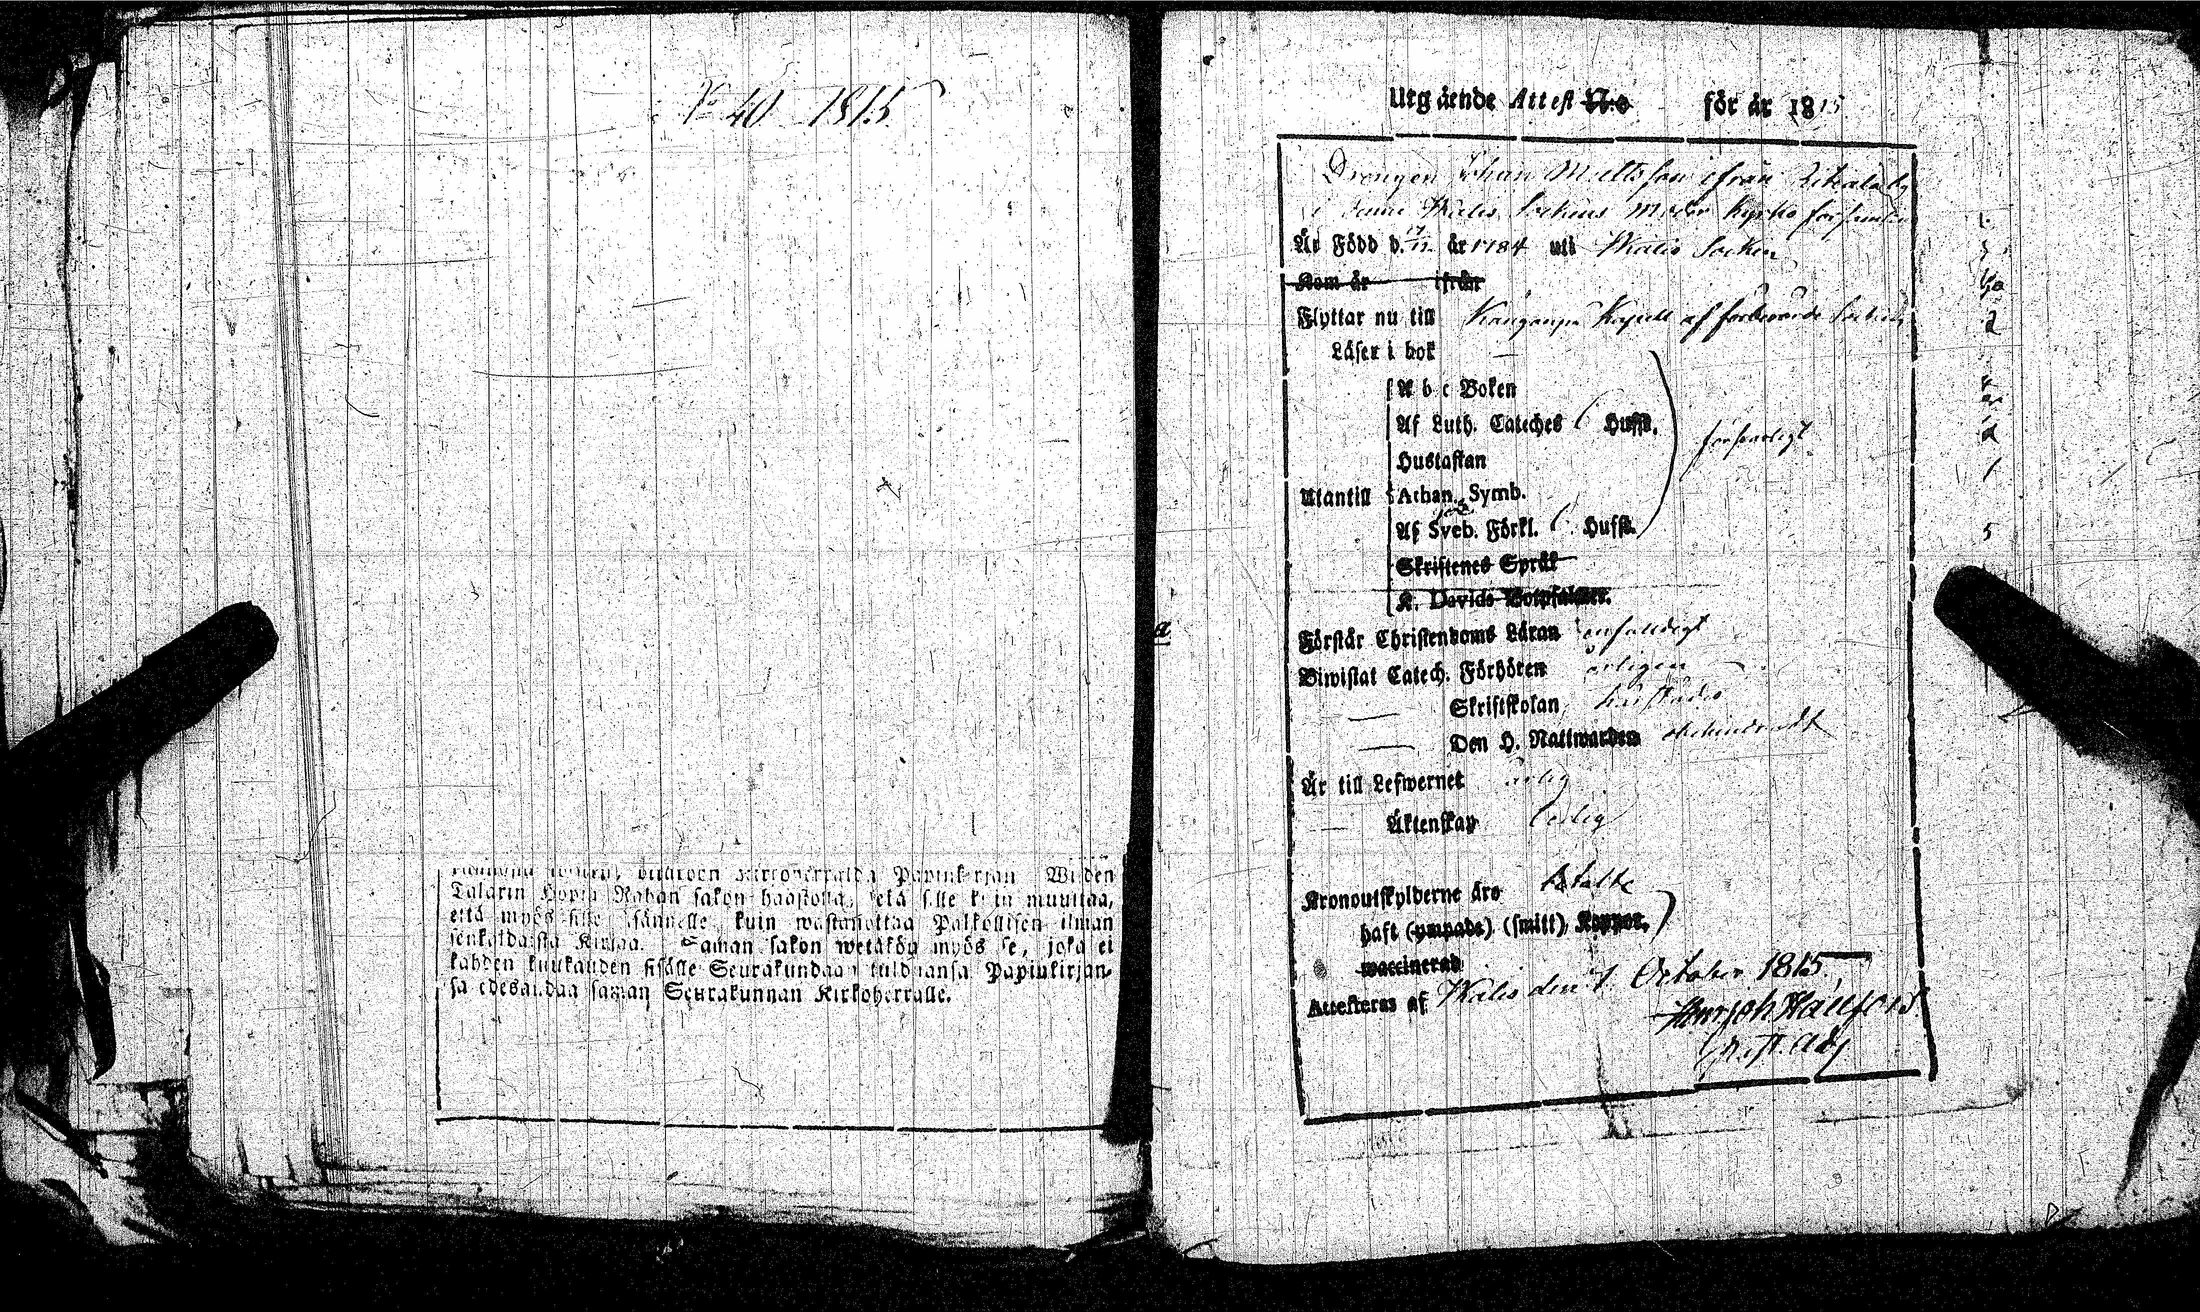 No 40 1815
Papinkirjan Wiiden
Talarin Hopia Rahan sakon haastolla, sekä sille kuin muuttaa,
että myös sille Isännelle kuin wastanottaa Palkollisen ilman
senkaldaista Kirjaa. Saman sakon wetäköön myös se, joka ei
kahden kuukauden sisälle Seurakundaan tulduansa Papinkirjan-
sa edesandaa saman Seurakunnan Kirkoherralle.
Utgående Attest N:o för år 1815
Drengen Johan Mattsson ifrån
i denne Walis Sockens Moder Kyrko församling
Är Född d. 17/11 år 1784 uti Walis Socken
Kom år ifrån
Flyttar nu till Kapell af förberörde Socken
Läser i bok —
A b c Boken
Af Luth. Cateches ( Hufst.
försvarligt
Hustaflan
Utantill Athan. Symb.
Af Sveb. Förkl. ( Hufst.
Skriftenes Språk
K. Davids Botpsalmer.
Förstår Christendoms Läran enfaldigt
Biwistat Catech. Förhören årligen
— Skriftskolan
— Den H. Nattwarden obehindradt
Är till Lefwernet ärlig
— Äktenskap ledig
Kronoutskylderne äro betalte
haft (ympade) (smitt) Koppor.
waccinerad
Attesteras af Walis den 1 October 1815.